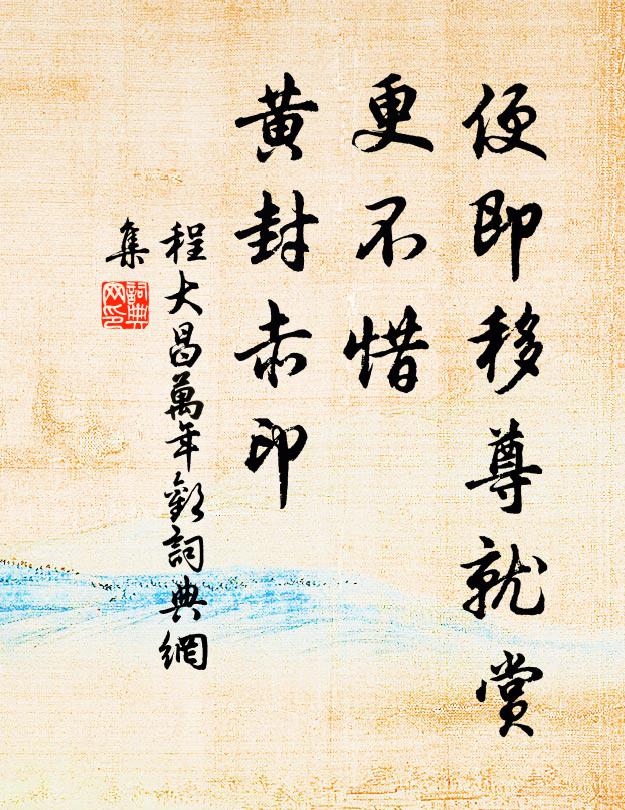 便即移尊就賞
更不惜
黃封赤印
程大昌萬年歡詞典網
集
詞典網印